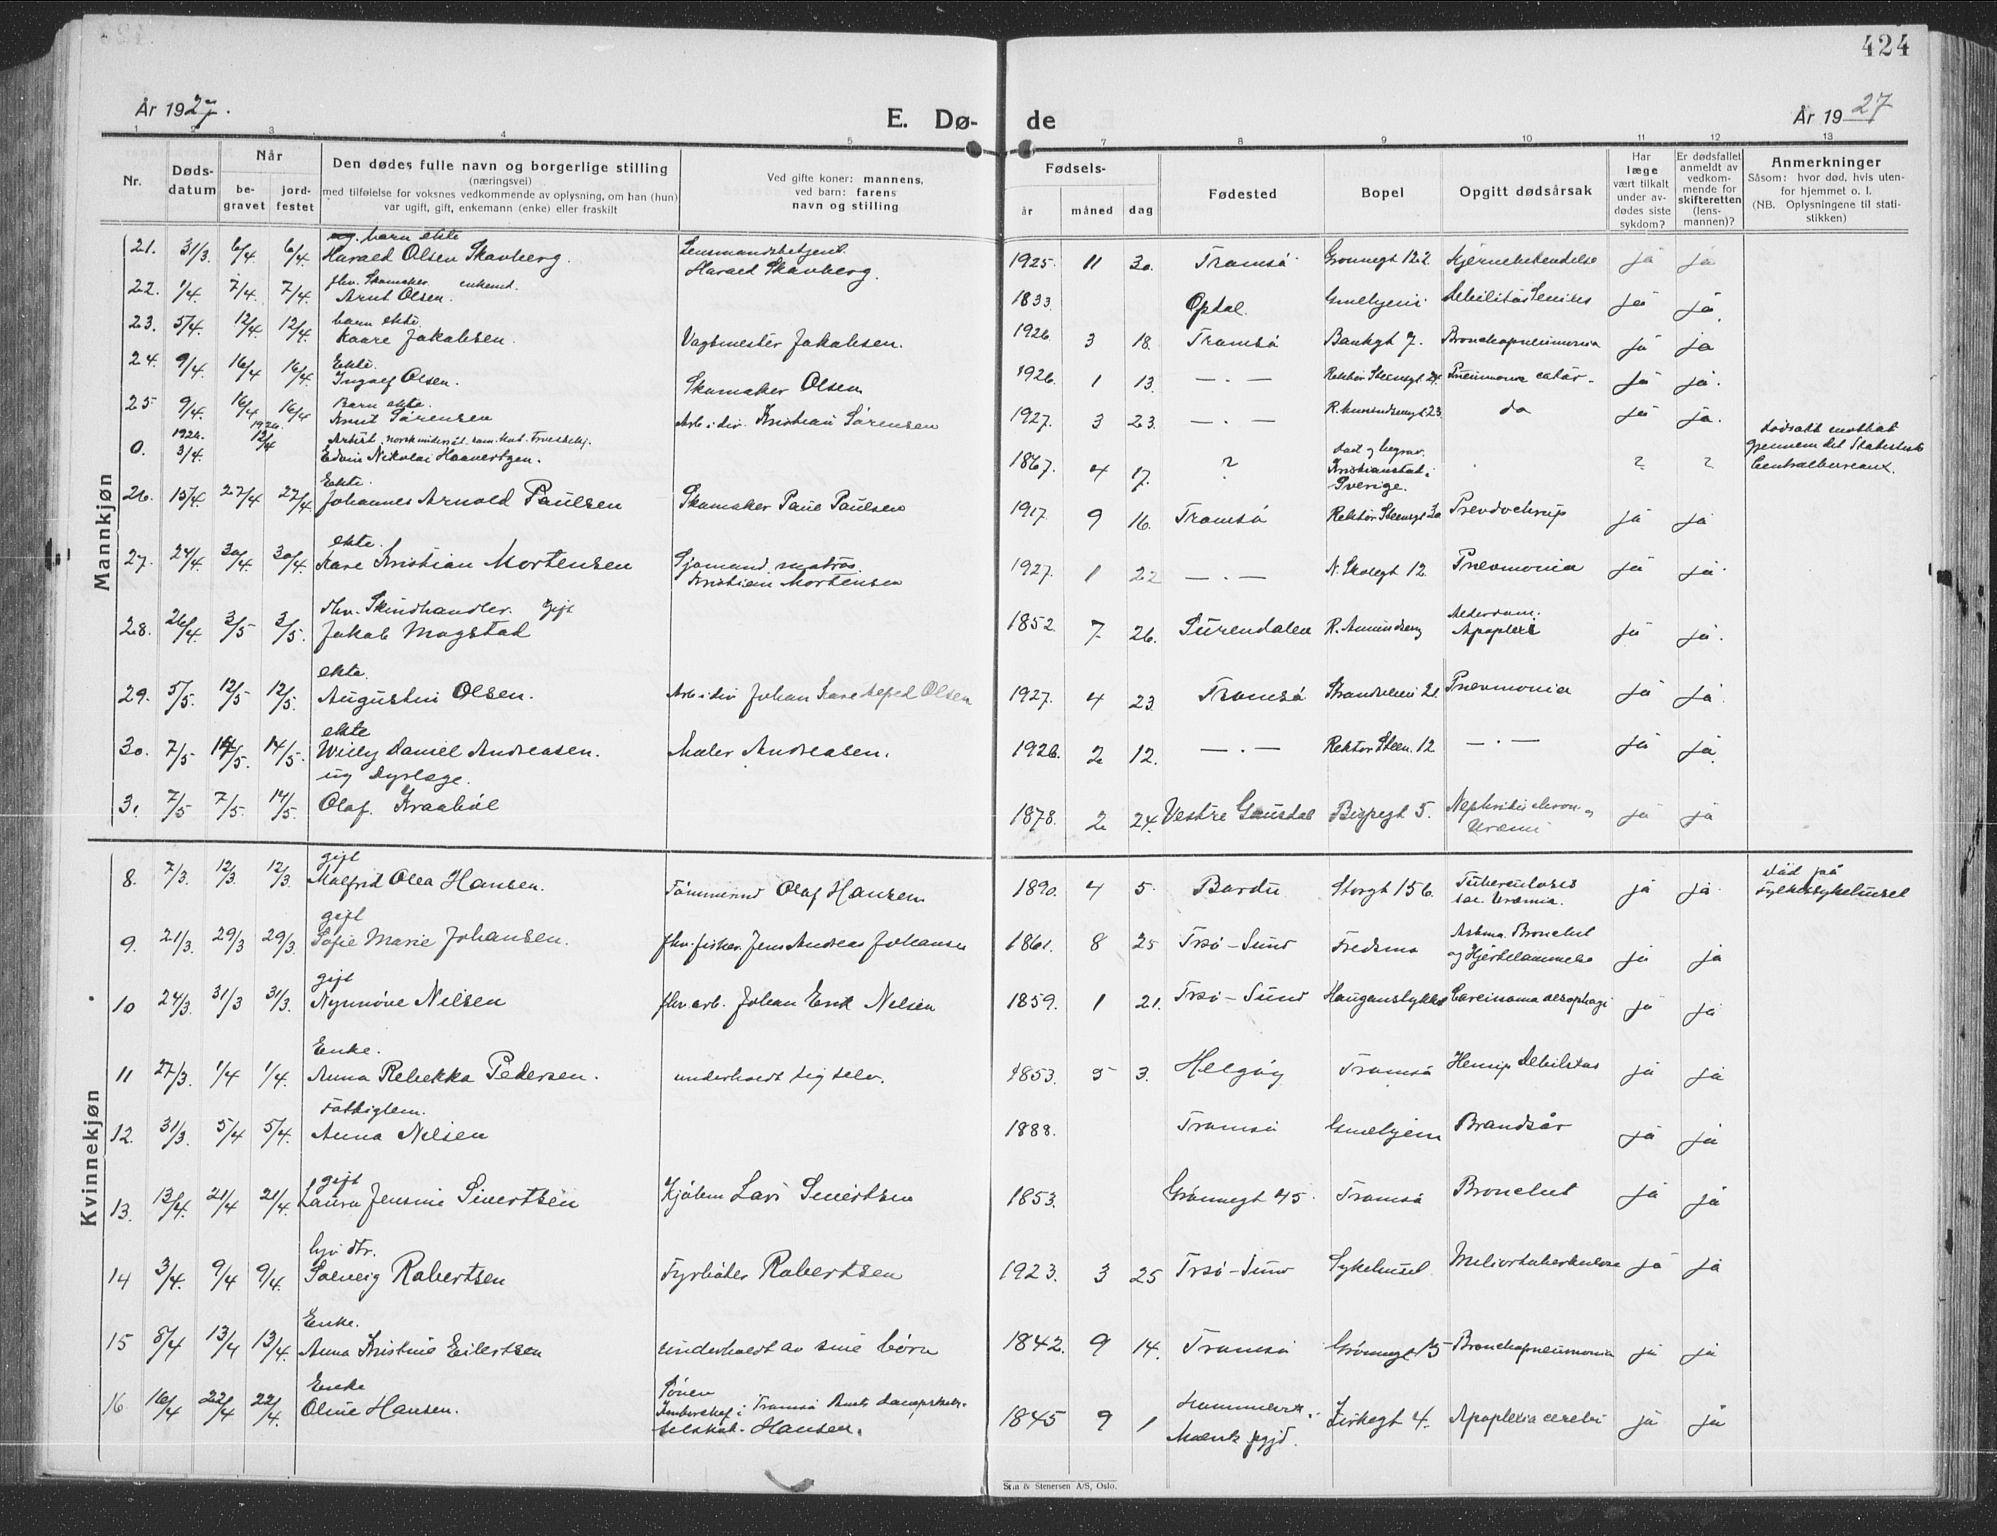 424
År 1927.
E. Dø-
de
År 1927
1 2 3 4 5 7 8 9 10 11 12 13
Nr.
Døds-
datum
Når
be-
gravet
jord-
festet
Den dødes fulle navn og borgerlige stilling
(næringsvei)
med tilføielse for voksnes vedkommende av oplysning, om han (hun)
var ugift, gift, enkemann (enke) eller fraskilt
Ved gifte koner: mannens,
ved barn: farens
navn og stilling
Fødsels-
år måned dag
Fødested
Bopel
Opgitt dødsårsak
Har
læge
vært tilkalt
under av-
dødes siste
sykdom?
Er dødsfallet
anmeldt av
vedkom-
mende for
skifteretten
(lens-
mannen)?
Anmerkninger
Såsom: hvor død, hvis uten-
for hjemmet o. l.
(NB. Oplysningene til stati-
stikken)
Mannkjøn
ug. barn ekte
21. 31/3 6/4 6/4. Harald Olsen Skavberg. Lensmandsbetjent Harald Skavberg. 1925. 11 30. Tromsö Grönnegt 122 Hjernebetendelse ja ja
fhv. Skomaker enkemd.
22. 1/4. 7/4. 7/4. Arnt Olsen. 1833. Opdal. Gmlehjem. debilitas Seniles ja ja.
barn ekte.
23. 5/4. 12/4. 12/4. Kaare Jakobsen. Vagtmester Jakobsen. 1926. 3 18. Tromsö Bankgt 7. Bronchopneumonia ja ja
Ekte.
24. 9/4. 16/4 16/4. Ingolf Olsen. Skomaker Olsen 1926. 1 13. — . — Rektor Steensgt 24. Pneumonia catar. ja ja.
Barn ekte.
25 9/4. 16/4 16/4 Knut Sørensen Arb. i div. Kristian Sørensen 1927. 3 23. — . — R. Amundsensgt 23 do ja ja.
1926. 1926.
0. 3/4. 12/4 Artist, norsk undersåt
Edvin Nikolai Haavertzen. 1867. 4 17. ? død og begrav. Kristianstad i Sverige. ? ? dødsatt mottat gjennem det Statistiske Centralbureaux.
Ekte.
26. 15/4. 27/4 27/4. Johannes Arnold Paulsen Skomaker Paul Paulsen 1917. 9 16. Tromsö Rektor Steensgt 30 Psevdochrup ja ja
ekte.
27. 24/4. 30/4. 30/4. Kåre Kristian Mortensen Sjømand, matros. Kristian Mortensen 1927. 1 22 — . — N. Skolegt 12. Pnevmonia ja ja.
fhv. Skindhandler. Gift
28. 26/4 3/5 3/5. Jakob Mogstad 1852. 7 26. Surendalen R. Amundseng Alderdom. Apoplexi ja ja.
ekte.
29. 5/5. 12/5 12/5. Augustin Olsen. Arb. i div Johan Olsen 1927. 4 23. Tromsö Strandveien 21. Pnevmonia ja ja.
ekte
30. 7/5 14/5. 14/5. Willy Daniel Andreasen. Maler Andreasen. 1926. 2 12. — . — Rektor Steen. 12 — . — ja ja.
ug Dyrlæge.
31 7/5 7/5. 14/5. Olaf. Kraabøl 1878. 2 24. Vestre Gausdal Bispegt 5. Nephritis chron. og Uræmi ja ja
Kvinnekjøn
gift
8. 7/3. 12/3. 12/3. Malfrid Olea Hansen. Tømmermd Olaf Hansen 1890. 4 5. Bardu Storgt 156 Tuberculosis Uræmia. ja ja. död paa Fylkessykehuset
gift
9. 21/3. 29/3 29/3. Sofie Marie Johansen. fhv. fisker Jens Andreas Johansen 1861. 8 25 Trsö-Sund Fredsmo Astma. Bronchit og Hjertelammelse ja ja
gift
10 24/3. 31/3 31/3. Nynnöve Nilsen fhv. arb. Johan Erik Nilsen 1859. 1 21. Trsö-Sund Hauganstykket Carcinoma oesophagi ja ja
Enke.
11 27/3. 1/4 1/4. Anna Rebekka Pedersen. underholdt sig selv. 1853. 5 3. Helgöy Tromsö debilitas ja ja
Fattiglem.
12. 31/3. 5/4 5/4. Anna Nilsen 1888. Tromsö Gmlehjem Brandsår ja ja
gift
13. 13/4. 21/4 21/4. Laura Jensine Sivertsen Sivertsen 1853. Grönnegt 45. Tromsö Bronchit ja ja
dtr.
14 3/4. 9/4 9/4. Solveig Robertsen Fyrböter Robertsen 1923. 3 25 Trsö-Sund Sykehuset Miliærtuberkulose ja ja
Enke.
15 8/4 13/4 13/4. Anna Kristine Eilertsen underholdt av sine börn 1842. 9 14. Tromsö Grönnegt Bronchopneumonia ja ja
Enke
16 16/4 22/4 22/4. Oline Hansen. Sönen Kontorchef i Tromsö Amts dampskibsselskab. Hansen. 1845 9 1 Kirkegt 4. Apoplexia cerebri ja ja
Stin & Stenersen A/S, Oslo.